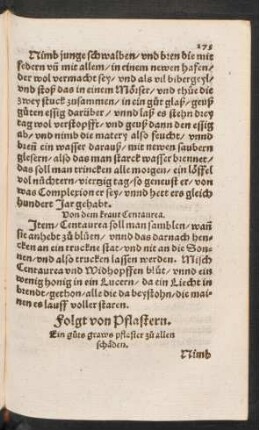 275
Nimb junge schwalben / vnd bren die mit
federn vñ mit allem / in einem newen hafen /
der wol vermacht sey / vnd als vil bibergeyl /
vnd stoß das in einem Mörser / vnd thůe die
zwey stuck zusammen / in ein gůt glaß / geuß
gůten essig darüber / vnnd laß es stehn drey
tag wol verstopfft / vnd geuß dann den essig
ab / vnd nimb die matery also feucht / vnnd
bren ein wasser darauß / mit newen saubern
glesern / also das man starck wasser brennet /
das soll man trincken alle morgen / ein löffel
vol nüchtern / viertzig tag / so geneust er / von
was Complexion er sey / vnnd hett ers gleich
hundert Jar gehabt.
Von dem kraut Centaurea.
Item / Centaurea soll man samblen / wañ
sie anhebt zů blüen / vnnd das darnach hen-
cken an ein truckne stat / vnd nit an die Son-
nen / vnd also trucken lassen werden. Misch
Centaurea vnd Widhopffen blůt / vnnd ein
wenig honig in ein Lucern / da ein Liecht in
brendt / gethon / alle die da beystohn / die mai-
nen es lauff voller staren.
Folgt von Pflastern.
Ein gůts graws pflaster zů allen
schäden.
Nimb